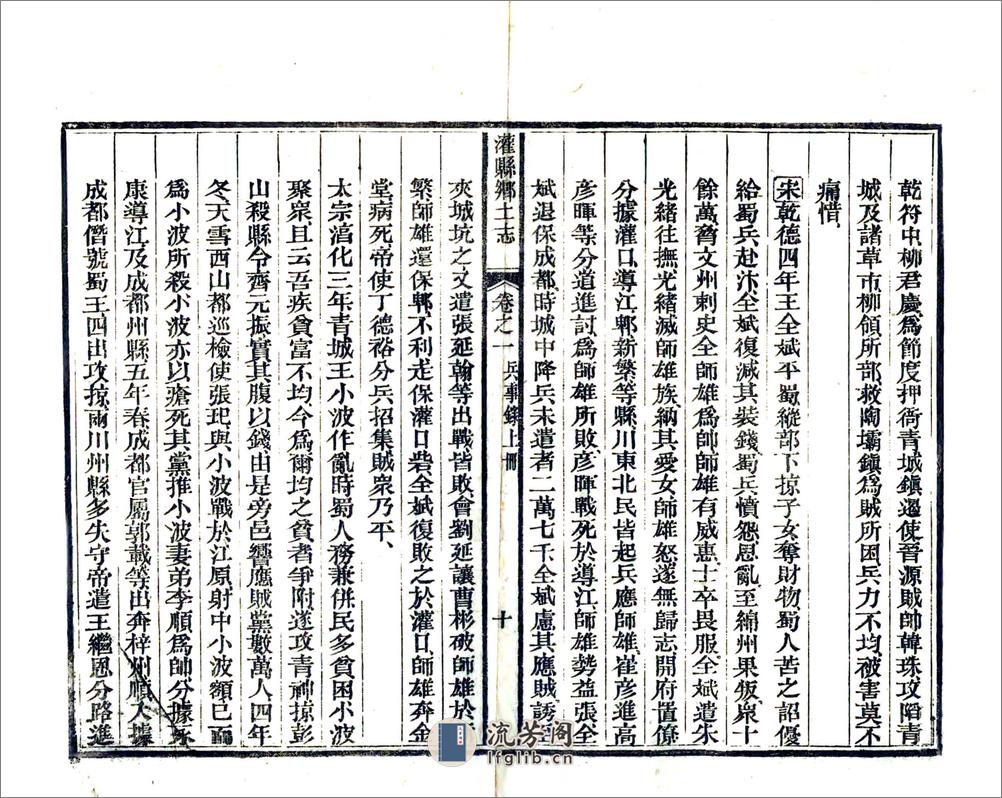 乾符中柳君慶爲節度押衙青城鎮遏使晉源賊帥韓珠攻陷青
城及諸草市柳領所部救陶壩鎮爲賊所困兵力不均被害莫不
痛惜
宋乾德四年王全斌平蜀縱部下掠子女奪財物蜀人苦之詔優
給蜀兵赴汴全斌復減其裝錢蜀兵憤怨思亂至綿州果叛衆十
餘萬脅文州刺史全師雄爲帥師雄有威惠士卒畏服全斌遣朱
光緒往撫光緒滅師雄族納其愛女師雄怒遂無歸志開府置僚
分據灌口導江郫新繁等縣川東北民皆起兵應師雄崔彦進高
彦暉等分道進討爲師雄所敗彦暉戰死於導江師雄勢益張全
斌退保成都時城中降兵未遣者二萬七千全斌慮其應賊誘至
灌縣鄉土志 卷之一 兵事錄上冊 十
夾城坑之又遣張延翰等出戰皆敗會劉延讓曹彬破師雄於新
繁師雄還保郫不利走保灌口砦全斌復敗之於灌口師雄奔金
堂病死帝使丁德裕分兵招集賊衆乃平、
太宗淳化三年青城王小波作亂時蜀人務兼併民多貧困小波
聚衆且云吾疾貧富不均今爲爾均之貧者爭附遂攻青神掠彭
山殺縣令齊元振實其腹以錢由是旁邑響應賊黨數萬人四年
冬天雪西山都巡檢使張玘與小波戰於江原射中小波額已而
爲小波所殺小波亦以瘡死其黨推小波妻弟李順爲帥分據永
康導江及成都州縣五年春成都官屬郭載等出奔梓州順入據
成都僭號蜀王四出攻掠兩川州縣多失守帝遣王繼恩分路進
流芳阁
lfglib.cn